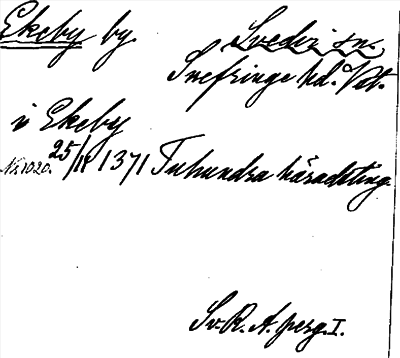 Ekeby by. Svedvi sn.
Snefringe hd. Vstm.
i Ekeby
No 1020. 25/11 1371 Tuhundra häradsting.
Sv. R. A. perg. I.